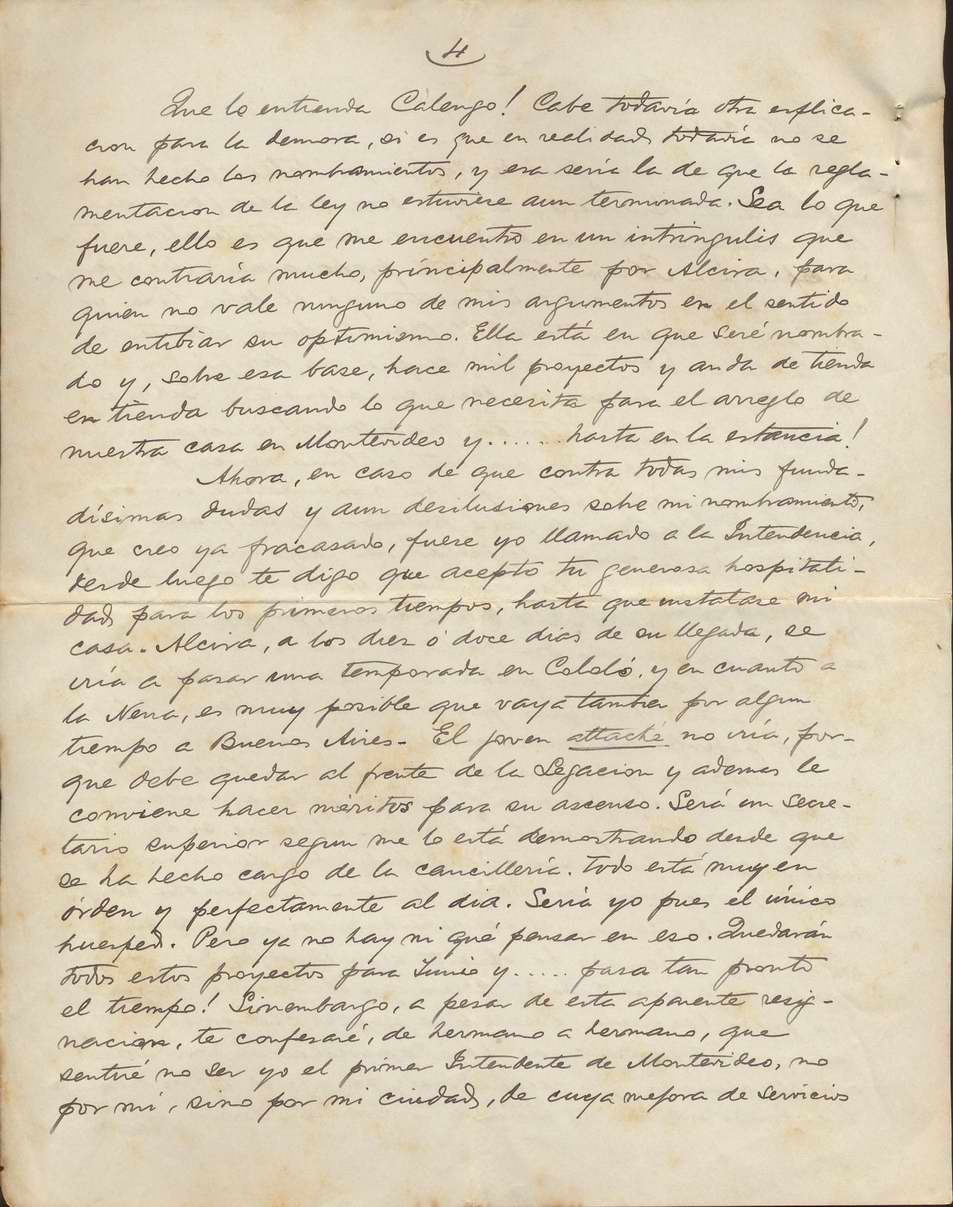 4
Que lo entienda Calengo! Cabe todavía otra esplica-
cion para la demora, si es que en realidad todavía no se
han hecho los nombramientos, y esa sería la de que la regla-
mentacion de la ley no estuviese aun terminada. Sea lo que
fuere, ello es que me encuentro en un intríngulis que
me contraría mucho, principalmente por Alcira, para
quien no vale ninguno de mis argumentos en el sentido
de entibiar su optimismo. Ella está en que seré nombra-
do y, sobre esa base, hace mil proyectos y anda de tienda
en tienda buscando lo que necesita para el arreglo de
nuestra casa en Montevideo y...... hasta en la estancia!
Ahora, en caso de que contra todas mis funda-
dísimas dudas y aun desilusiones sobre mi nombramiento,
que creo ya fracasado, fuese yo llamado a la Intendencia,
desde luego te digo que acepto tu generosa hospitali-
dad para los primeros tiempos, hasta que instalase mi
casa. Alcira, a los diez ó doce dias de su llegada, se
iría a pasar una temporada en Cololó, y en cuanto a
la Nena, es muy posible que vaya tambien por algun
tiempo a Buenos Aires. El joven attaché no iría, por-
que debe quedar al frente de la Legacion y ademas le
conviene hacer méritos para su ascenso. Será un secre-
tario superior segun me lo está demostrando desde que
se ha hecho cargo de la cancillería. Todo está muy en
órden y perfectamente al dia. Sería yo pues el único
huesped. Pero ya no hay ni qué pensar en eso. Quedarán
todos estos proyectos para Junio y..... pasa tan pronto
el tiempo! Sinembargo, a pesar de esta aparente resig-
nacion, te confesaré, de hermano a hermano, que
sentiré no ser yo el primer Intendente de Montevideo, no
por mí, sino por mi ciudad, de cuya mejora de servicios